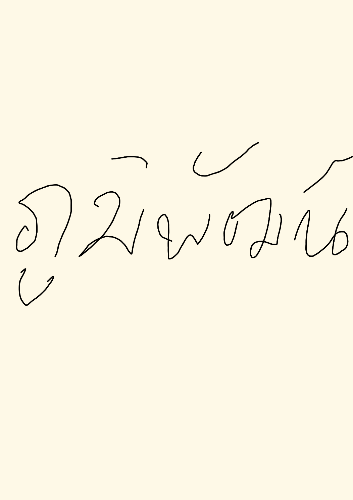 ภูมิพัฒน์